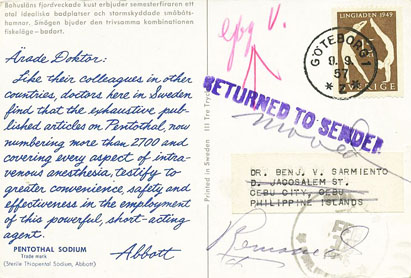 Bohusläns fjordveckade kust erbjuder semesterfiraren ett
otal idealiska badplatser och stormskyddade småbåts-
hamnar. Smögen bjuder den trivsamma kombinationen
fiskeläge - badort.
Ärade Doktor:
Like their colleagues in other
countries, doctors here in Sweden
find that the exhaustive pub-
lished articles on Pentothal, now
numbering more than 2700 and
covering every aspect of intra-
venous anesthesia, testify to
greater convenience, safety and
effectiveness in the employment
of this powerful, short-acting
agent.
PENTOTHAL SODIUM
Trade mark
(Sterile Thiopental Sodium, Abbott)
Abbott
Printed in Sweden
LINGIADEN 1949
SVERIGE
GÖTEBORG 1
9. 9.
57
* Z *
RETURNED TO SENDER
moved
DR. BENJ. V. SARMIENTO
D. JACOSALEM ST.
CEBU CITY, CEBU
PHILIPPINE ISLANDS
Removed